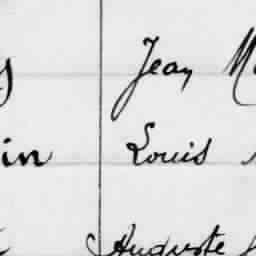 s Jean M
in Louis
Auguste